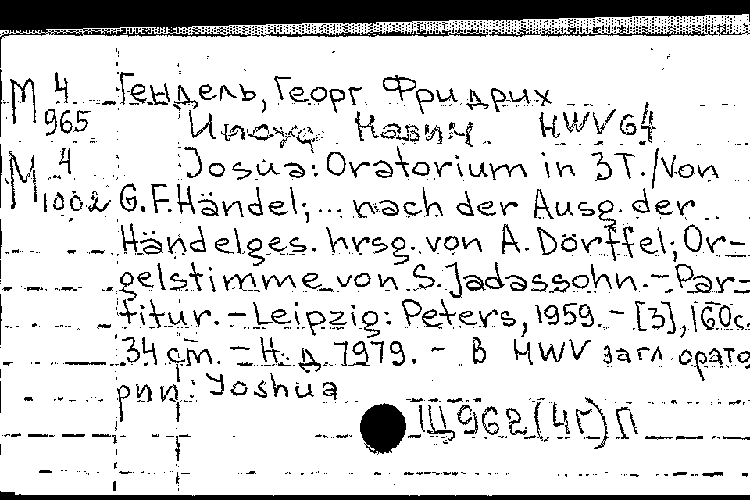 М 4 965 Гендель, Георг Фридрих
Иисус Навин. HWV 64
М 4 1002 Josua: Oratorium in 3 T. / Von
G.F. Händel; ... nach der Ausg. der
Händelges. hrsg. von A. Dörffel; Or-
gelstimme von S. Jadassohn. - Par-
titur. - Leipzig: Peters, 1959. - [3], 160 с.
34 cm. - Н. д. 7979. - В HWV загл орато
рии: Yoshua
Щ 962 (4Г) П